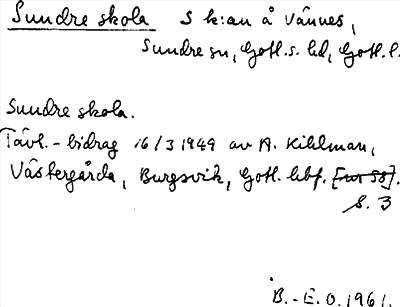 Sundre skola S k:an å Vännes,
Sundre sn, Gotl.s. hd, Gotl. l.
Sundre skola.
Tävl.-bidrag 16/3 1949 av A. Kihlman,
Västergårda, Burgsvik, Gotl. hbf.
s. 3
B.-E.O. 1961.